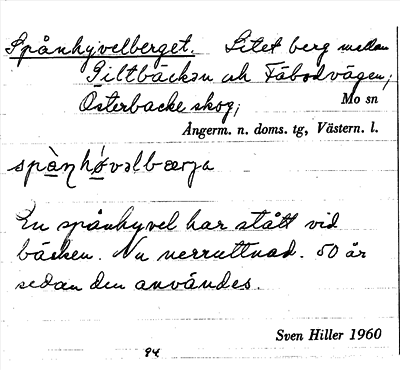 Spånhyvelberget. Litet berg mellan
Giltbäcken och Fäbodvägen;
Österbacke skog;
Mo sn
Ångerm. n. doms. tg, Västern. l.
spàn̥hø̀vəlbærja
En spånhyvel har stått vid
bäcken. Nu nerruttnad. 50 år
sedan den användes.
Sven Hiller 1960
94